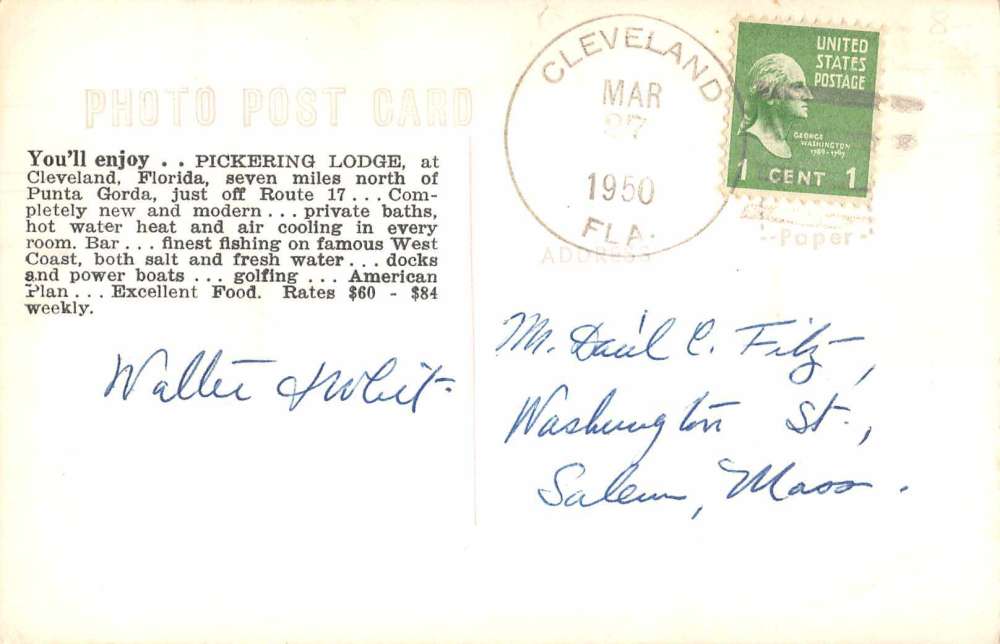 PHOTO POST CARD
You'll enjoy . . PICKERING LODGE, at
Cleveland, Florida, seven miles north of
Punta Gorda, just off Route 17 . . . Com-
pletely new and modern . . . private baths,
hot water heat and air cooling in every
room. Bar . . . finest fishing on famous West
Coast, both salt and fresh water . . . docks
and power boats . . . golfing . . . American
Plan . . . Excellent Food. Rates $60 - $84
weekly.
Walter
CLEVELAND
MAR
27
1950
FLA.
UNITED
STATES
POSTAGE
GEORGE
WASHINGTON
1789-1797
1 CENT 1
Paper
ADDRESS
Mr. C. Fitz,
Washington St.,
Salem, Mass.